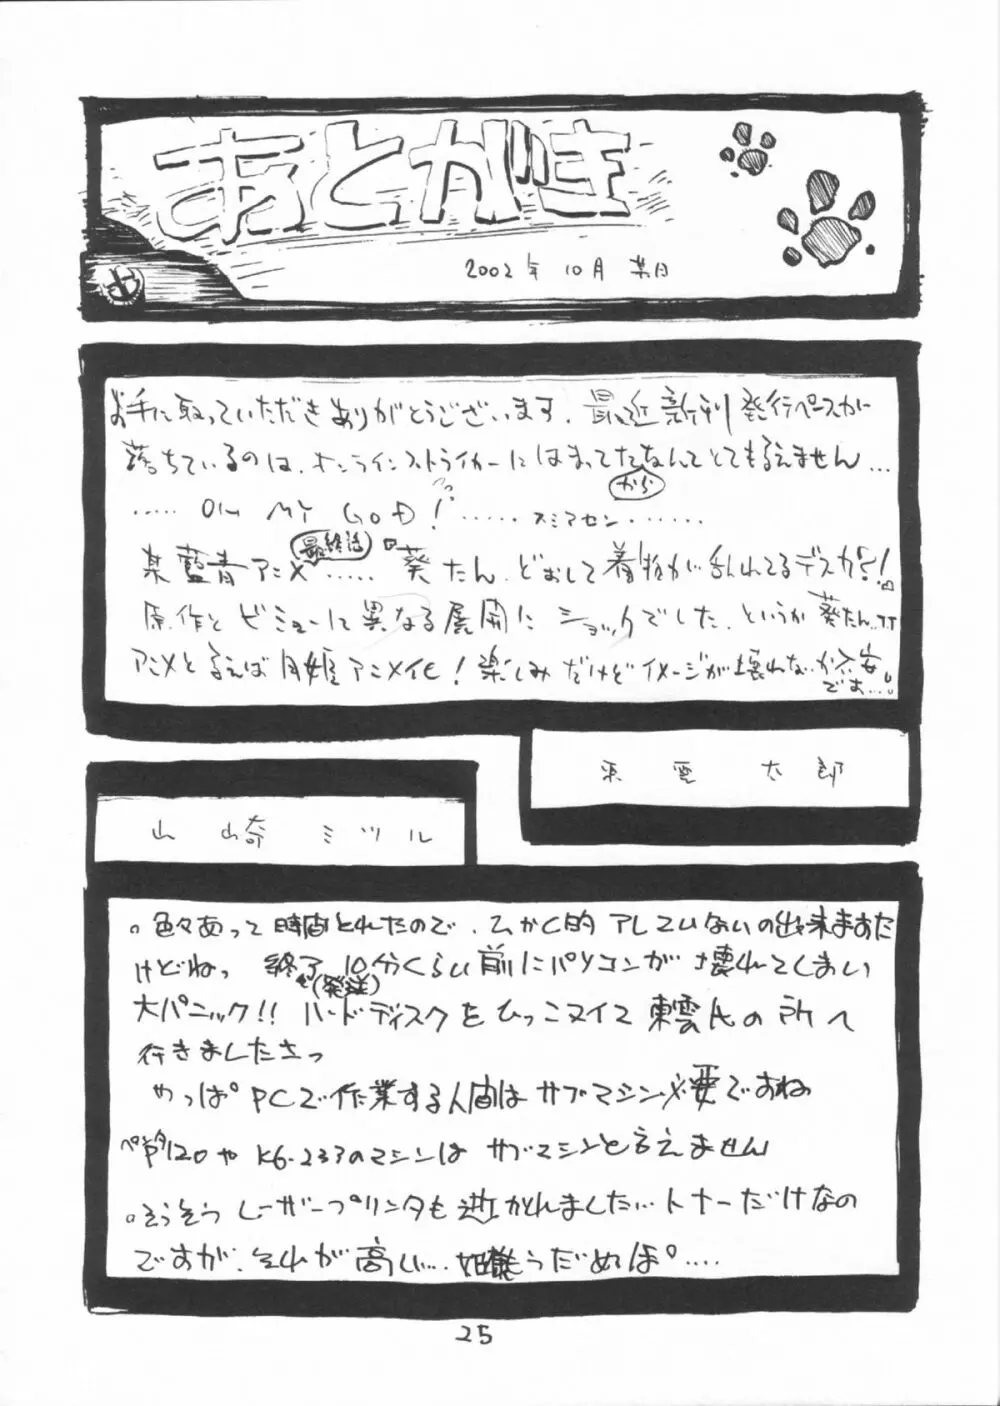 あとがき
2002年10月某日
お手に取っていただきありがとうございます。最近新刊発行ペースが
落ちているのは、オンラインストライカーにはまってたからなんてとても言えません...
..... OH MY GOD! ..... スミマセン......
某藍青アニメ最終話..... 葵たん、どおして着物が乱れてるデスカ?!
原作とビミョーに異なる展開にショックでした。というか葵たん..
アニメと言えば月姫アニメ化!楽しみだけどイメージが壊れな..か不安
でお...。
東雲太郎
山崎ミツル
。色々あって時間とれたので、
けどねっ 終了(発送)10分くらい前にパソコンが壊れてしまい
大パニック!! ハードディスクをひっこヌイて東雲氏の所へ
行きましたさっ
やっぱPCで作業する人間はサブマシン必要ですね
ペンタ120やK6-233のマシンはサブマシンと言えません
。そうそうレーザープリンタも逝かれました... トナーだけなの
ですが、それが高い... もうだめぽ....
25